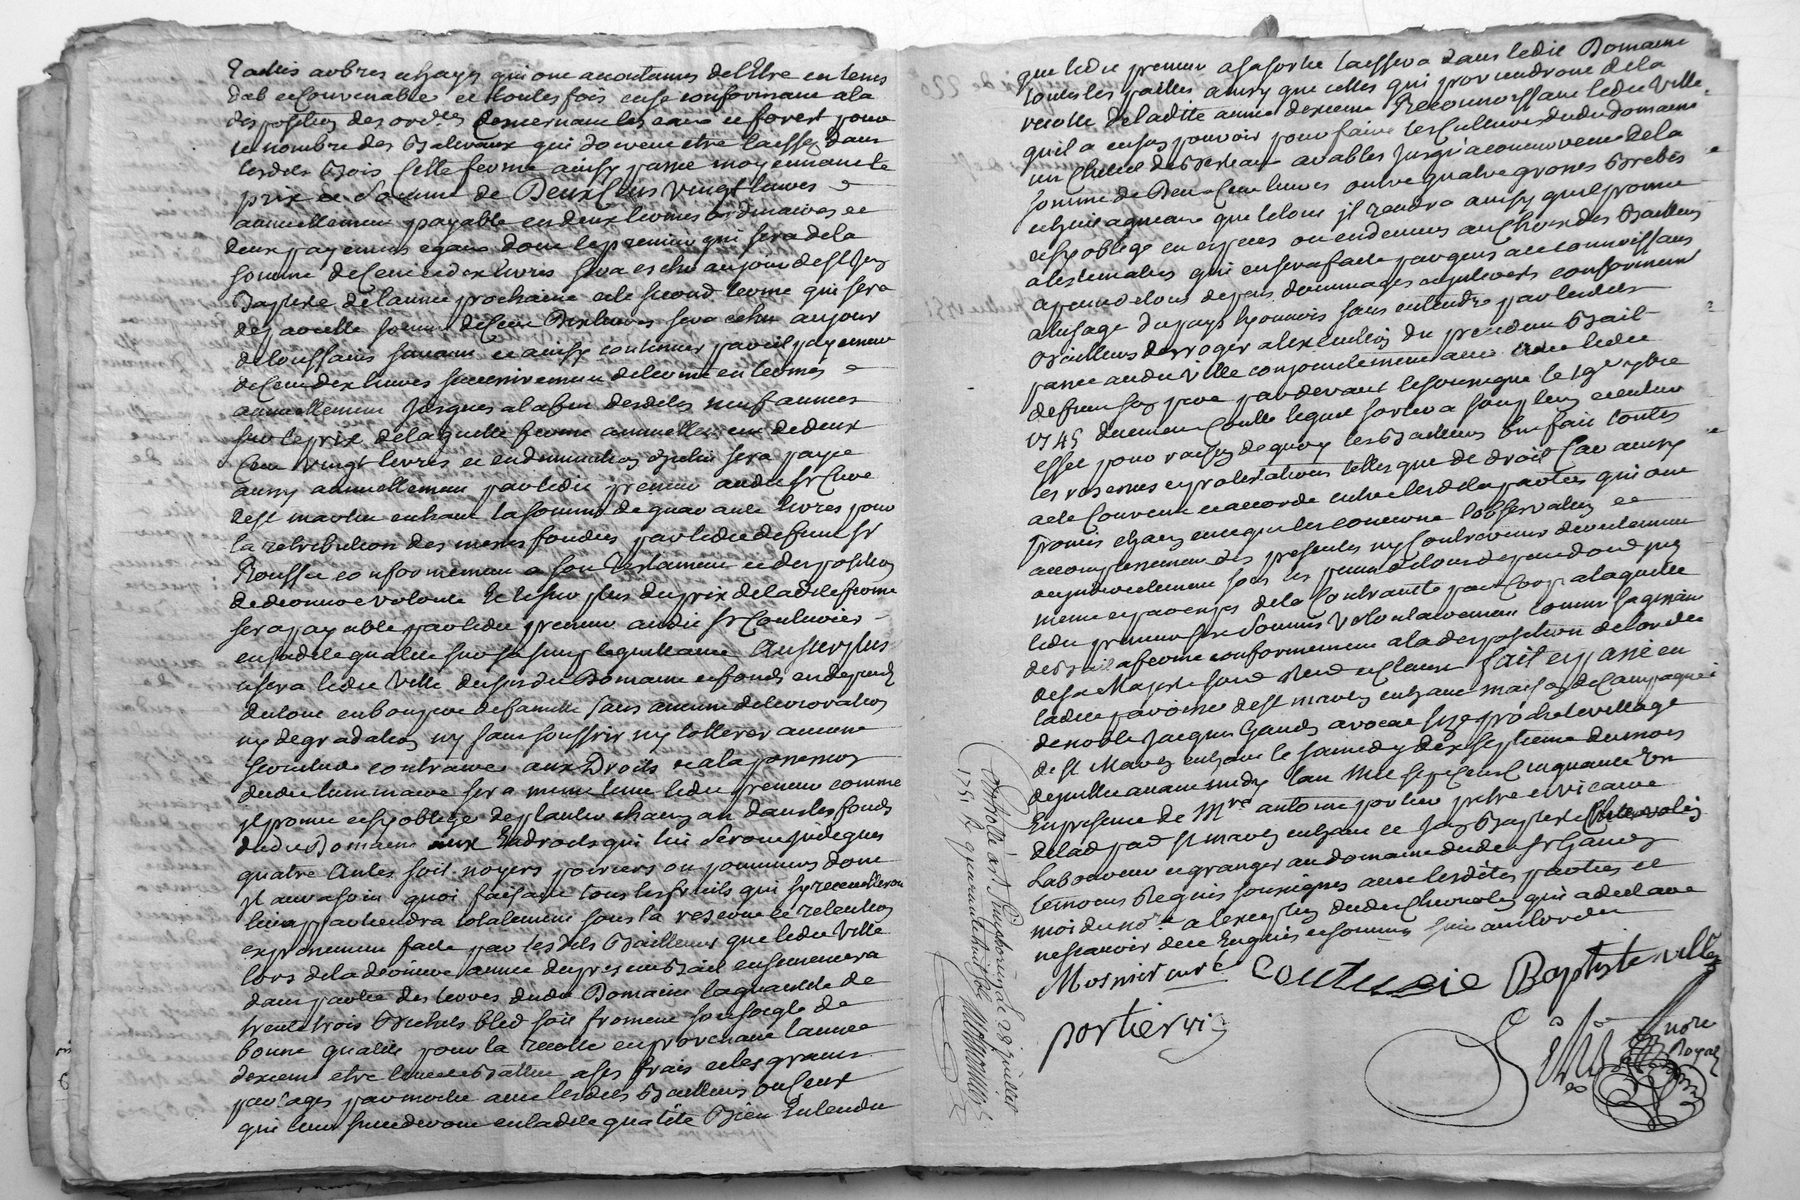 arbres et hayes qui ont accoutumés delltre en tems
deb et Convenable et toutes fois en se conformant a la
disposition des ordces Concernant les eaux et forest pour
le nombre des Baliveaux qui doivent etre laissez dans
lesdits Bois Cette ferme ainsy passé moyennant le
prix et somme de Deux Cens vingt livres
annuellement payable en deux termes ordinaires et
deux payemens egaux dont le premier qui sera de la
somme de Cent et dix livres sera eschu au jour de st Jean
Baptiste de lannée prochaine et le second terme qui sera
de pareille somme de Cent Dix livres sera echu au jour
de toussains suivant et ainsy continuer pareil payement
de Cent dix livres successivement de terme en termes
annuellement jusques a la fin desdites neuf années
sur le prix de laquelle ferme annuelle de deux
Cent vingt livres et en diminution dicelui sera payé
aussy annuellement par ledit preneur audit sr Curé
de st martin en haut la somme de quarante livres pour
la retribution des messes fondées par ledit defunt sr
Rousset conformement a son testament et disposition
de derniere volonté Et le sur plus du prix de ladite ferme
sera payable par ledit preneur audit sr Couturier
en sadite qualité sur sa simple quittance Au surplus
usera ledit Ville dudit Domaine et fonds en dependant
du tout en bon pere de famille sans aucune deterioration
ny degradation ny sans souffrir ny tollerer aucune
servitude contraires aux Droits et a la possession
dudit luminaire sera meme tenu ledit preneur comme
il promet et sy oblige de planter chacun an dans les fonds
dudit Domaine aux Endroits qui lui seront indiqués
quatre Antes soit noyers poiriers ou pommiers dont
il aura soin quoi faisant tous les fruits qui sy recceuilleront
luy appartiendra totalement sous la reserve et retention
expressement faite par lesdits Bailleurs que ledit Ville
lors de la derniere année du present Bail ensemencera
dans partie des terres dudit Domaine la quantité de
trente trois Bichets bled soit froment soit soigle de
bonne qualité pour la recolte en provenant lannée
dexieme etre levée et Battue a ses frais et les grains
partagés par moitié avec lesdits Bailleurs ou ceux
qui leur succederont en ladite qualité Bien Entendu
que ledit preneur a sa sortie laissera dans ledit Domaine
toutes les pailles ainsy que celles qui proviendront de la
recolte de ladite année dexieme Reconnoissant ledit Ville
quil a en son pouvoir pour faire les Cultures dudit domaine
un Cheptel de Bestiaux arables jusqua concurrence de la
somme de Deux Cent livres outre quatre grosses Brebis
et huit agneaux que le tout il rendra ainsy quil promet
et sy oblige en especes ou en deniers au Choix des Bailleurs
a lestimation qui en sera faite par gens a ce connoissans
a peine de tous depens dommages et interets conformement
a lusage du pays lyonnois sans entendre par lesdits
Bailleurs derroger a lexecution du precedent Bail
passé audit Ville conjointement avec ledit
defunt son pere par devant le sousigné le 19e xbre
1745 duement Controllé lequel sortira son plein et entier
effet pour raison de quoy les Bailleurs ont fait toutes
les reserves et protestations telles que de droit Car ainsy
a eté Convenu et accordé entre lesdites parties qui ont
promis chacun en ce qui les concerne lobservation et
accomplissement des presentes ny Contrevenir directement
ou indirectement sous les peines de tous depens dont
meme par corps de la Contrainte par Corps a laquelle
ledit preneur sest soumis Volontairement comme sagissant
de Bail a ferme conformement a la disposition de lord.
de sa Majesté Fait et passé en
ladite paroisse de st martin en haut maison de Campagne
de noble jacques Gandin avocat size proche le village
de st Martin en haut le samedy dix septieme du mois
de juillet avant midy lan Mil sept Cens Cinquante Un
En presence de Mre antoine portier pretre et vicaire
de lad. par. st martin en haut et Jean Baptiste Chevrolin
Laboureur et granger au domaine dudit sr Gandin
temoins Requis sousignés avec lesdites parties et
moi dit nore a lexception dudit Chevrolin qui a declaré
ne scavoir de ce Enquis et sommé suivant lordce
Mosnier curé Couturie Baptiste ville
portier vic
Gille nore Royal
Controllé à st Simphorien le 28 juillet
1751 R quarante huit sols